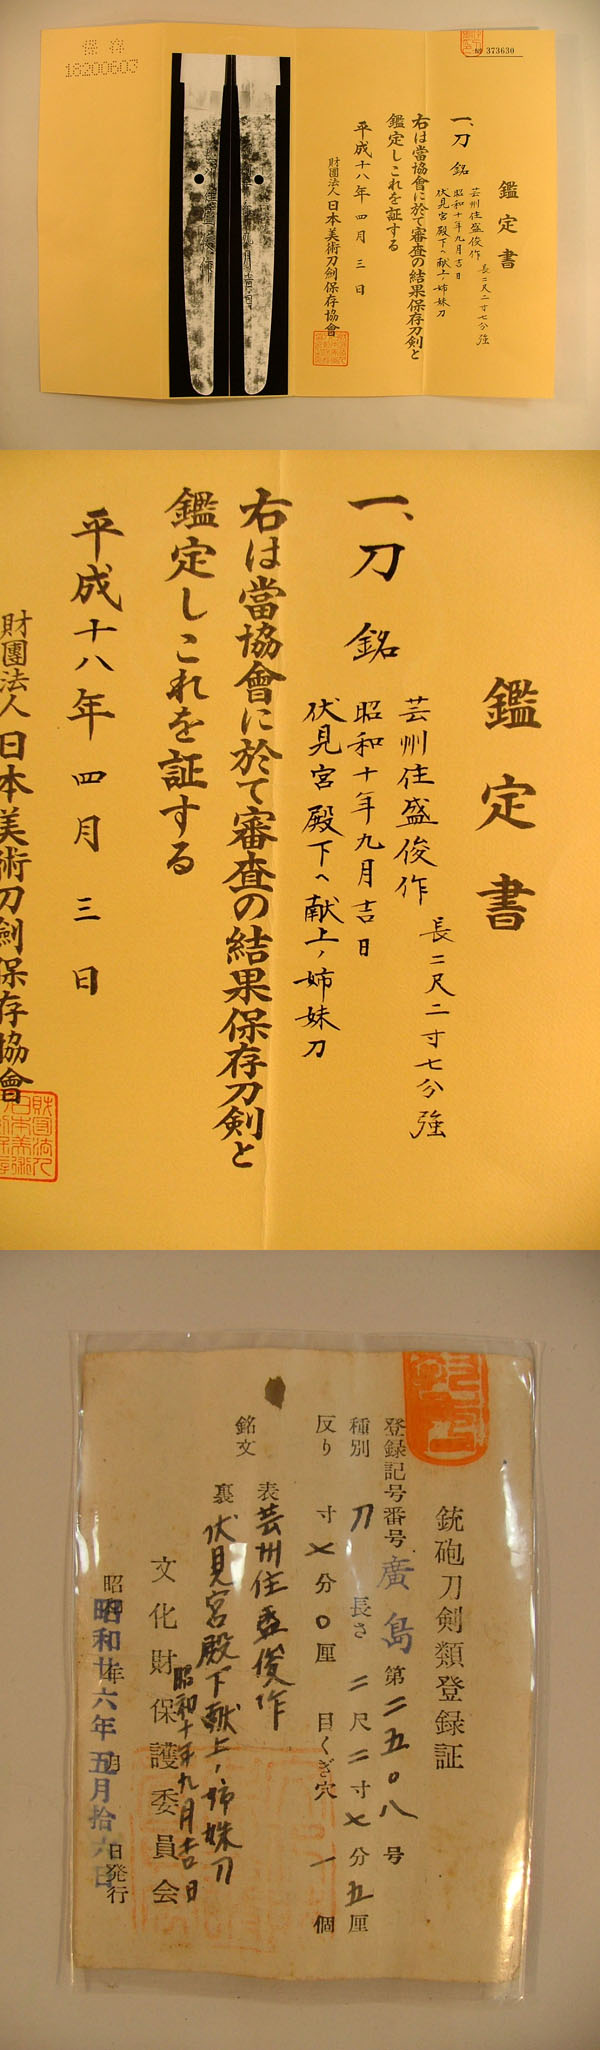 保存
18200603
No 373630
鑑定書
一、刀 銘
芸州住盛俊作 長二尺二寸七分強
昭和十年九月吉日
伏見宮殿下ヘ献上ノ姉妹刀
右は當協會に於て審査の結果保存刀剣と
鑑定しこれを証する
平成十八年四月三日
財團法人日本美術刀劍保存協會
鑑定書
一、刀 銘
芸州住盛俊作 長二尺二寸七分強
昭和十年九月吉日
伏見宮殿下ヘ献上ノ姉妹刀
右は當協會に於て審査の結果保存刀剣と
鑑定しこれを証する
平成十八年四月三日
財團法人日本美術刀劍保存協會
銃砲刀剣類登録証
登録記号番号 廣島 第二五〇八号
種別 刀 長さ 二尺二寸七分五厘
反り 寸七分〇厘 目くぎ穴 一個
銘文 表 芸州住盛俊作
裏 伏見宮殿下献上ノ姉妹刀
昭和十年九月吉日
文化財保護委員会
昭和廿六年五月拾六日
昭和 年 月 日発行